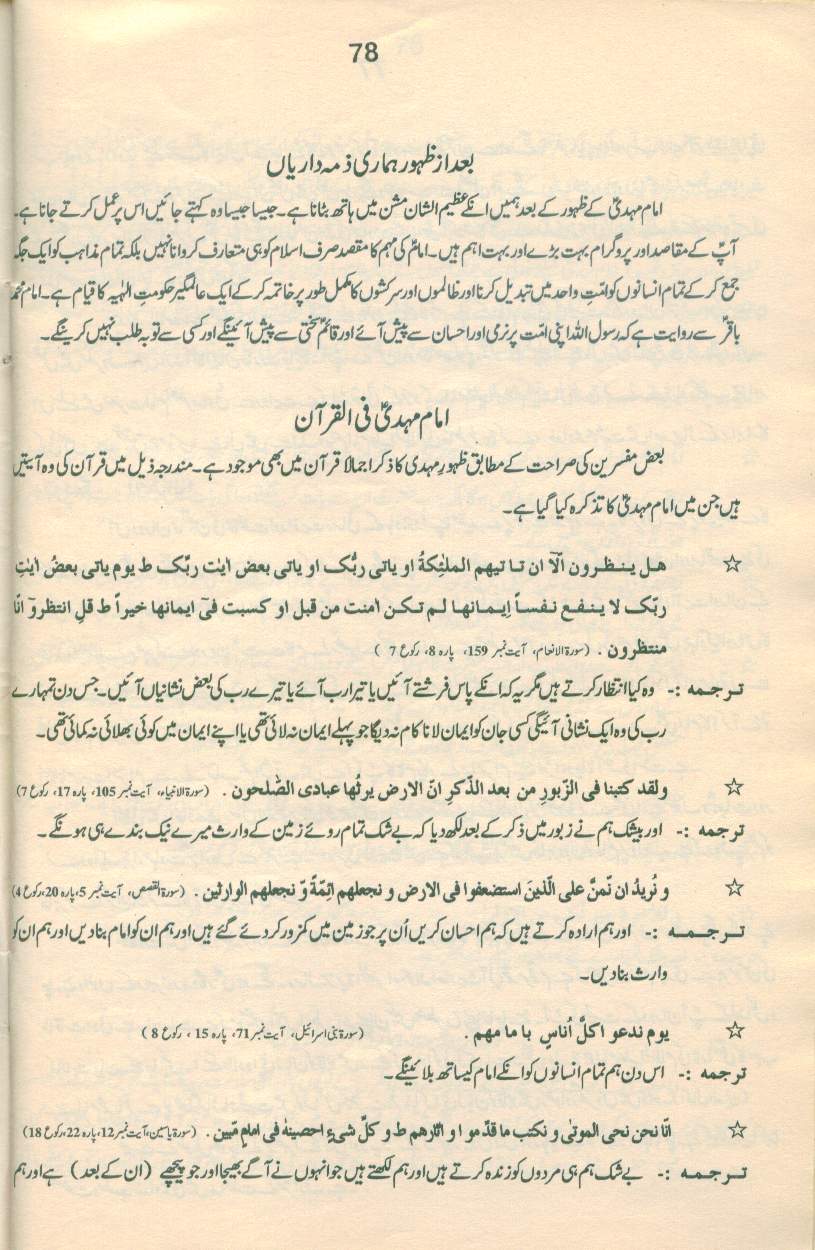 78
بعد از ظہور ہماری ذمہ داریاں
امام مہدیؑ کے ظہور کے بعد ہمیں انکے عظیم الشان مشن میں ہاتھ بٹانا ہے۔ جیسا جیسا وہ کہتے جائیں اس پر عمل کرتے جانا ہے۔
آپؑ کے مقاصد اور پروگرام بہت بڑے اور بہت اہم ہیں۔ امامؑ کی مہم کا مقصد صرف اسلام کو ہی متعارف کروانا نہیں بلکہ تمام مذاہب کو ایک جگہ
جمع کر کے تمام انسانوں کو امتِ واحد میں تبدیل کرنا اور ظالموں اور سرکشوں کا مکمل طور پر خاتمہ کر کے ایک عالمگیر حکومتِ الٰہیہ کا قیام ہے۔ امام محمد
باقرؑ سے روایت ہے کہ رسول اللہ اپنی امّت پر نرمی اور احسان سے پیش آئے اور قائمؑ سختی سے پیش آئینگے اور کسی سے توبہ طلب نہیں کرینگے۔
امام مہدیؑ فی القرآن
بعض مفسرین کی صراحت کے مطابق ظہورِ مہدی کا ذکر اجمالا قرآن میں بھی موجود ہے۔ مندرجہ ذیل میں قرآن کی وہ آیتیں
ہیں جن میں امام مہدیؑ کا تذکرہ کیا گیا ہے۔
☆ ھل ینظرون الّآ ان تا تیھم الملئِکۃُ او یاتی ربُّک او یاتی بعض اٰیٰت ربِّک ط یوم یاتی بعضُ اٰیٰتِ
ربّک لا ینفع نفساً اِیمانھا لم تکن اٰمنت من قبل او کسبت فیٓ ایمانھا خیراً ط قلِ انتظروٓ انّا
منتظرون ۔ (سورۃ الانعام، آیت نمبر 159، پارہ 8، رکوع 7 )
ترجمہ :- وہ کیا انتظار کرتے ہیں مگر یہ کہ انکے پاس فرشتے آئیں یا تیرا رب آئے یا تیرے رب کی بعض نشانیاں آئیں۔ جس دن تمہارے
رب کی وہ ایک نشانی آئیگی کسی جان کو ایمان لانا کام نہ دیگا جو پہلے ایمان نہ لائی تھی یا اپنے ایمان میں کوئی بھلائی نہ کمائی تھی۔
☆ ولقد کتبنا فی الزّبورِ من بعد الذّکرِ انّ الارض یرثُھا عبادی الصّٰلحون ۔ (سورۃ الانبیاء، آیت نمبر 105، پارہ 17، رکوع 7)
ترجمہ :- اور بیشک ہم نے زبور میں ذکر کے بعد لکھ دیا کہ بے شک تمام روئے زمین کے وارث میرے نیک بندے ہی ہونگے۔
☆ و نُریدُ ان نّمنَّ علی الّذینَ استضعفوا فی الارض و نجعلھم ائِمّۃً وّ نجعلھم الوارثین ۔ (سورۃ القصص، آیت نمبر 5، پارہ 20، رکوع 4)
ترجمہ :- اور ہم ارادہ کرتے ہیں کہ ہم احسان کریں اُن پر جو زمین میں کمزور کر دئے گئے ہیں اور ہم ان کو امام بنا دیں اور ہم ان کو
وارث بنا دیں۔
☆ یوم ندعو اکلَّ اُناسٍ با ما مھم ۔ (سورۃ بنی اسرائیل، آیت نمبر 71، پارہ 15 ، رکوع 8 )
ترجمہ :- اس دن ہم تمام انسانوں کو انکے امام کیساتھ بلائینگے۔
☆ انّا نحن نحی الموتیٰ و نکتب ما قدّمو ا و اٰثارھم ط و کلَّ شیءٍ احصینٰہُ فی امامٍ مّبین ۔ (سورۃ یاسین، آیت نمبر 12، پارہ 22، رکوع 18)
ترجمہ :- بے شک ہم ہی مردوں کو زندہ کرتے ہیں اور ہم لکھتے ہیں جو انہوں نے آگے بھیجا اور جو پیچھے (ان کے بعد) ہے اور ہم